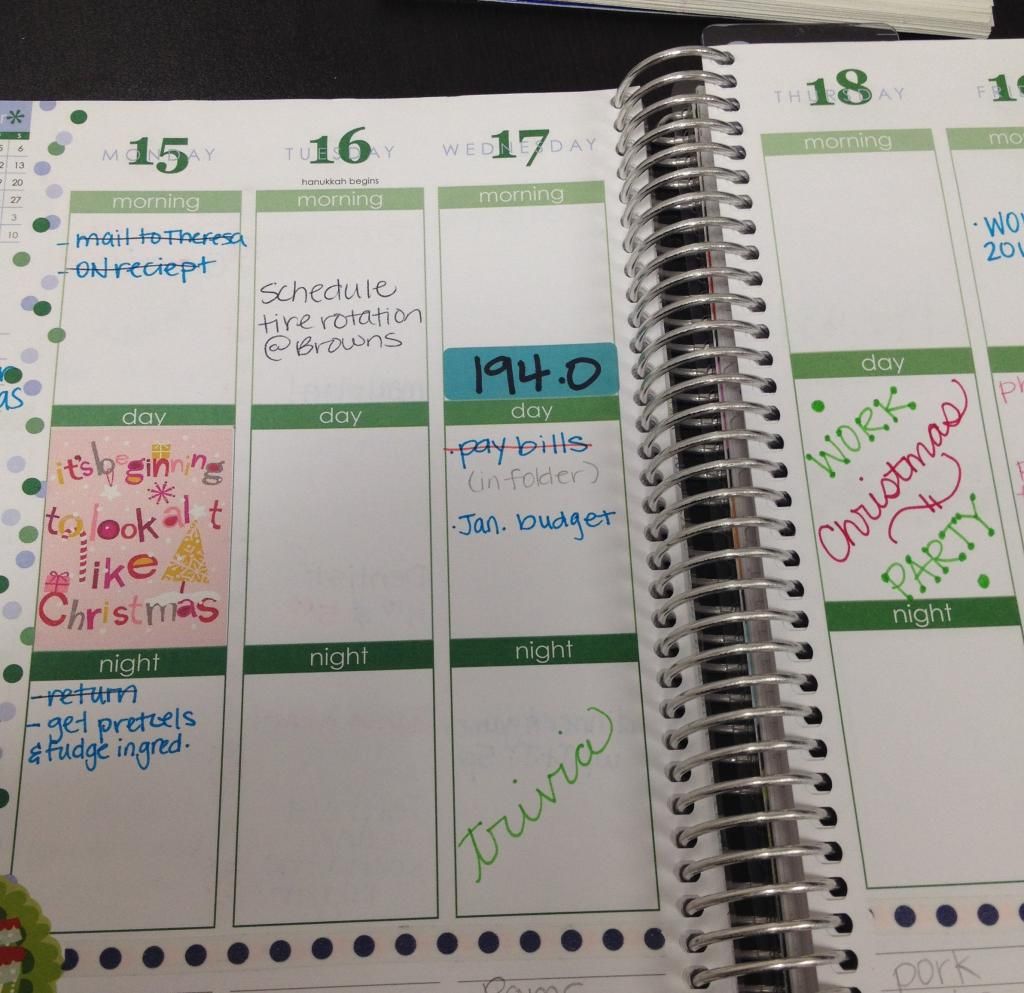 15
MONDAY
morning
- mail to Theresa
- ON reciept
day
it's beginning
to look a lot
like
Christmas
night
- return
- get pretzels
& fudge ingred.
16
TUESDAY
hanukkah begins
morning
Schedule
tire rotation
@Browns
day
night
17
WEDNESDAY
morning
194.0
day
· pay bills
(in folder)
· Jan. budget
night
trivia
18
THURSDAY
morning
day
WORK
Christmas
PARTY
night
pork
3
6
13
20
27
3
10